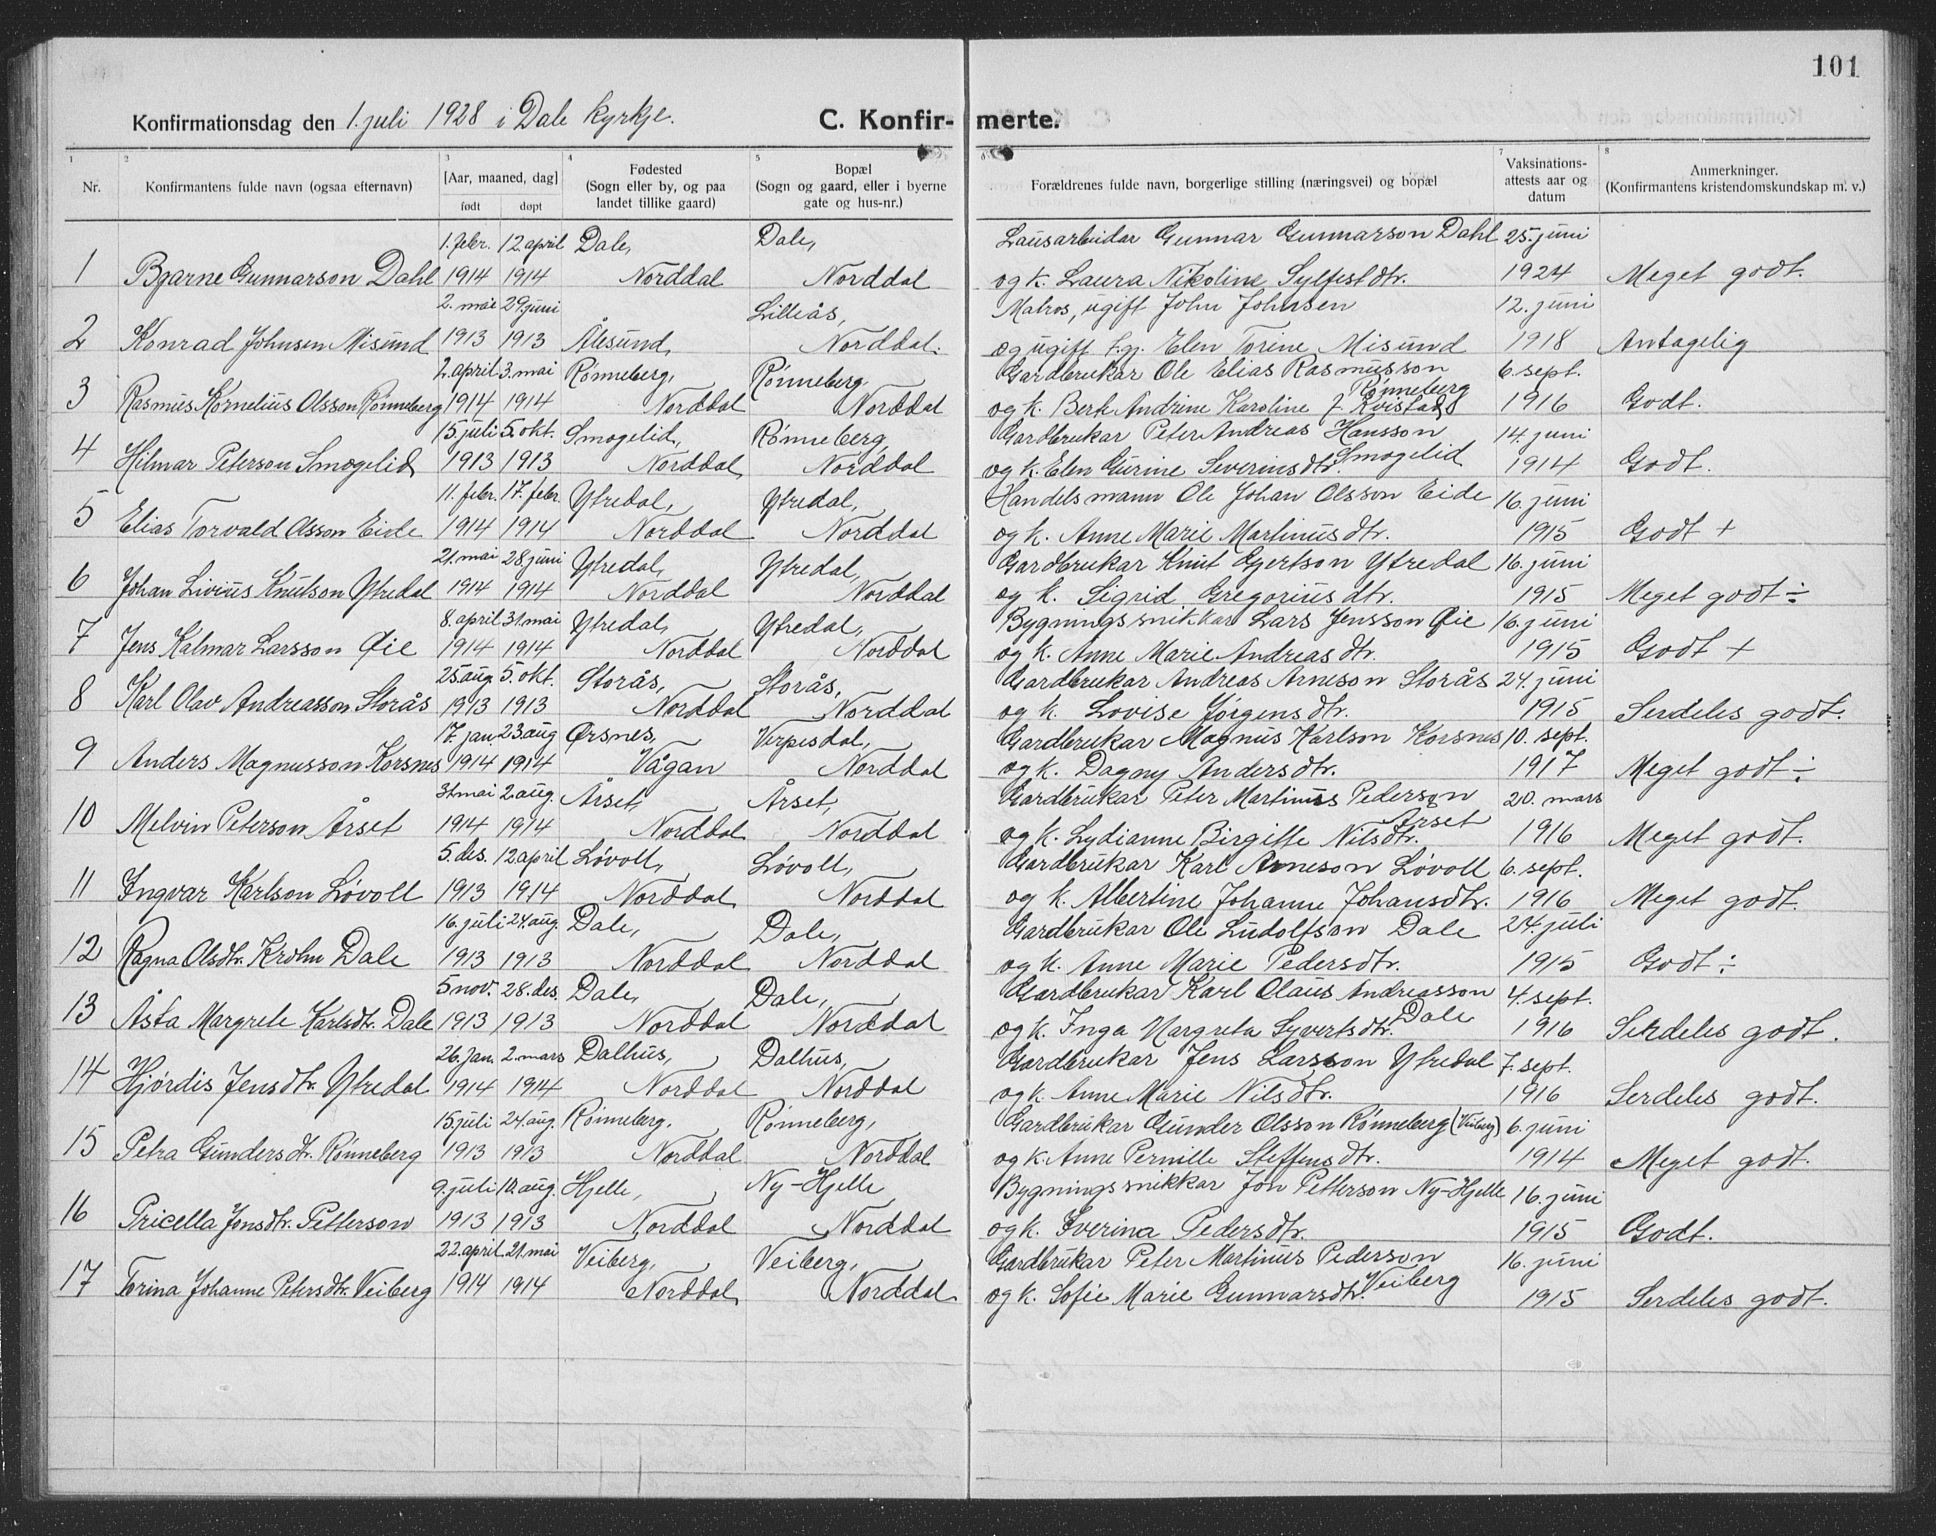 101
Konfirmationsdag den 1. juli 1928 i Dale kyrkje.
C. Konfirmerte.
1 2 3 4 5 7 8
Nr.
Konfirmantens fulde navn (ogsaa efternavn)
[Aar, maaned, dag]
født døpt
Fødested
(Sogn eller by, og paa
landet tillike gaard)
Bopæl
(Sogn og gaard, eller i byerne
gate og hus-nr.)
Forældrenes fulde navn, borgerlige stilling (næringsvei) og bopæl
Vaksinations-
attests aar og
datum
Anmerkninger.
(Konfirmantens kristendomskundskap m. v.)
1. febr. 12. april Dale, Dale, Lausarbeidar Gunnar Gunnarson Dahl 25. juni
1 Bjarne Gunnarson Dahl 1914 1914 Norddal Norddal og k. Laura Nikoline Sylfestdtr. 1924 Meget godt.
2. mai 29. juni Lilleås, Matros, ugift John Johnsen 12. juni
2 Konrad Johnsen Misund 1913 1913 Ålesund, Norddal. og ugift Elen Torine Misund 1918 Antagelig
2. april 3. mai Rønneberg, Rønneberg, Gardbrukar Ole Elias Rasmusson 6. sept.
Rønneberg
3 Rasmus Kornelius Olsson Rønneberg 1914 1914 Norddal Norddal og k. Berte Andrine Karoline f. Kvistad 1916 Godt.
15. juli 5. okt. Smogelid, Rønneberg, Gardbrukar Peter Andreas Hansson 14. juni
4 Hilmar Peterson Smogelid 1913 1913 Norddal Norddal og k. Elen Gurine Severinsdtr. Smogelid 1914 Godt.
11. febr. 17. febr. Ytredal, Ytredal, Handelsmann Ole Johan Olsson Eide 16. juni
5 Elias Torvald Olsson Eide 1914 1914 Norddal Norddal og k. Anne Marie Martinusdtr. 1915 Godt +
21. mai 28. juni Ytredal, Ytredal, Gardbrukar Knut Gjertson Ytredal 16. juni
6 Johan Livius Knutson Ytredal 1914 1914 Norddal Norddal og k. Sigrid Gregoriusdtr. 1915 Meget godt ÷
8. april 31. mai Ytredal, Ytredal, Bygningssnikkar Lars Jensson Øie 16. juni
7 Jens Kalmar Larsson Øie 1914 1914 Norddal Norddal og k. Anne Marie Andreasdtr. 1915 Godt +
25. aug. 5. okt. Storås, Storås, Gardbrukar Andreas Arneson Storås 24. juni
8 Karl Olav Andreasson Storås 1913 1913 Norddal Norddal og k. Lovise Jørgensdtr. 1915 Serdeles godt.
17. jan. 23 aug Ørsnes, Verpesdal, Gardbrukar Magnus Karlson Korsnes 10. sept.
9 Anders Magnusson Korsnes 1914 1914 Vågan Norddal og k. Dagny Andersdtr. 1917 Meget godt ÷
31. mai 2. aug. Årset, Årset, Gardbrukar Peter Martinus Pederson 20. mars
Årset
10 Melvin Peterson Årset 1914 1914 Norddal Norddal og k. Lydianne Birgitte Nilsdtr. 1916 Meget godt.
5. des. 12 april Løvoll, Løvoll, Gardbrukar Karl Arneson Løvoll 6. sept.
11 Ingvar Karlson Løvoll 1913 1914 Norddal Norddal og k. Albertine Johanne Johansdtr. 1916 Meget godt.
16. juli 24. aug. Dale, Dale, Gardbrukar Ole Ludolfson Dale 24. juli
12 Ragna Olsdtr. Krohn Dale 1913 1913 Norddal Norddal og k. Anne Marie Pedersdtr. 1915 Godt ÷
5 nov. 28. des. Dale, Dale, Gardbrukar Karl Olaus Andreasson 4. sept.
Dale
13 Åsta Margrete Karlsdtr. Dale 1913 1913 Norddal Norddal og k. Inga Margreta Syvertsdtr. 1916 Serdeles godt.
26. jan. 2. mars Dalhus, Dalhus, Gardbrukar Jens Larsson Ytredal 7. sept.
14 Hjørdis Jensdtr. Ytredal 1914 1914 Norddal Norddal og k. Anne Marie Nilsdtr. 1916 Serdeles godt.
15. juli 24. aug. Rønneberg, Rønneberg, Gardbrukar Gunder Olsson Rønneberg 6. juni
15 Petra Gundersdtr. Rønneberg 1913 1913 Norddal Norddal og k. Anne Pernille Steffensdtr. 1914 Meget godt.
9. juli 10. aug. Hjelle, Ny-Hjelle Bygningssnikkar Jon Petterson Ny-Hjelle 16. juni
16 Pricella Jonsdtr. Petterson 1913 1913 Norddal Norddal og k. Iverina Pedersdtr. 1915 Godt.
22. april 21. mai Veiberg, Veiberg, Gardbrukar Peter Martinus Pederson 16. juni
17 Torina Johanne Petersdtr. Veiberg 1914 1914 Norddal Norddal og k. Sofie Marie Gunnarsdtr. Veiberg 1915 Serdeles godt.